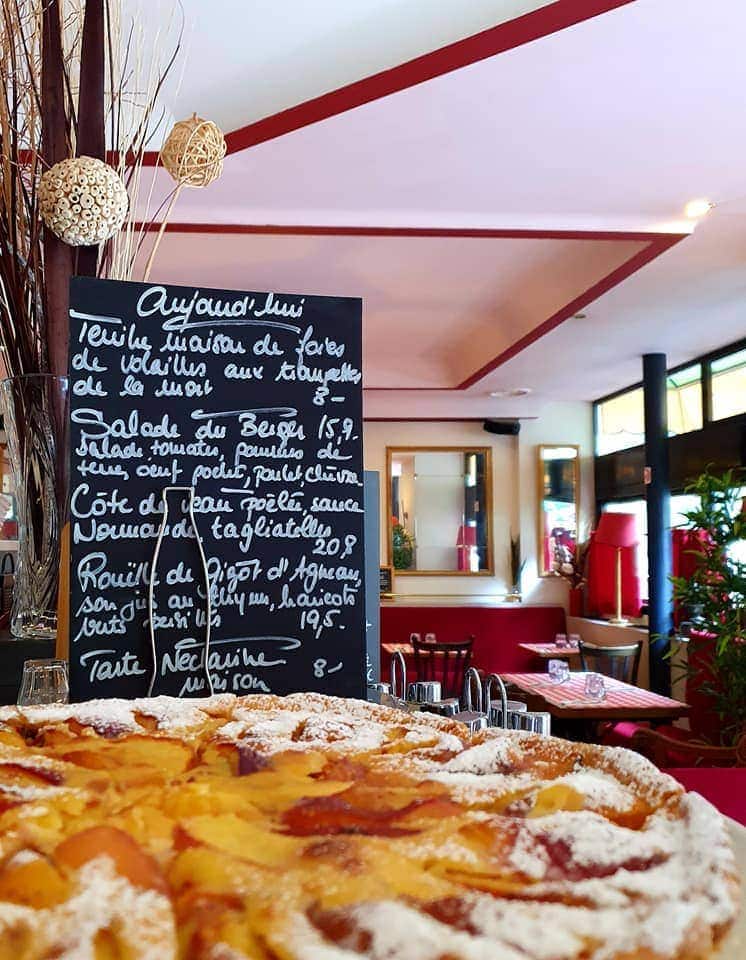 Aujourd'hui
Terrine maison de foies
de volailles aux trompettes
de la mort 8-
Salade du Berger 15,9.
salade tomates, pommes de
terre, oeuf poché, poulet, chèvre
Côte de veau poêlée, sauce
Normande, tagliatelles
20,8
Rouelle de Gigot d'Agneau,
son jus au thym, haricots
verts 19,5.
Tarte Nectarine 8-
maison